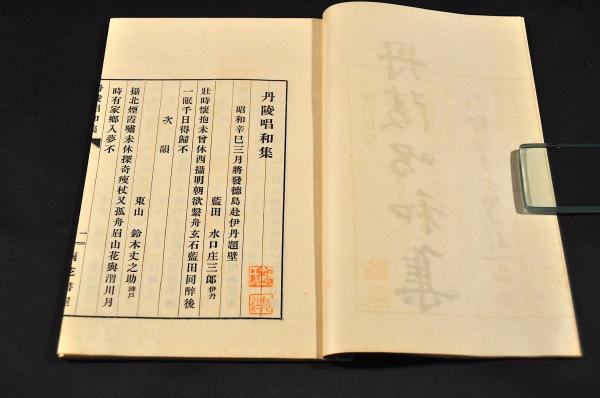 丹陵唱和集
昭和辛巳三月將發德島赴伊丹題壁
藍田 水口庄三郎 伊丹
壯時懷抱未曾休西攝明朝欲繫舟玄石藍田同醉後
一眠千日得歸不
次韻
東山 鈴木丈之助 神戶
攝北煙霞嘯未休探奇瘦杖又孤舟眉山花與渭川月
時有家鄉入夢不
丹陵唱和集
丹陵唱和集